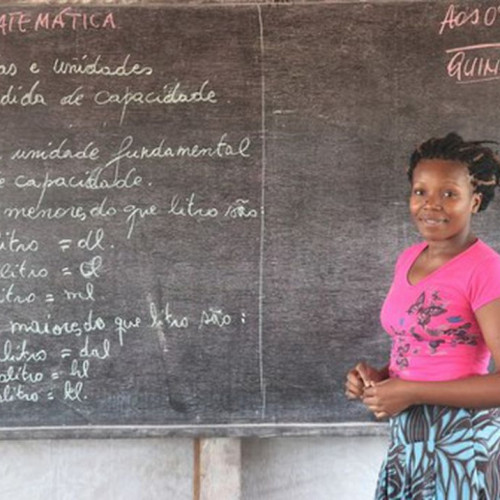 ATEMÁTICA
as e unidades
dida de capacidade.
unidade fundamental
e capacidade.
menores do que litro são:
litro = dl.
litro = cl
litro = ml
maiores do que litro são:
litro = dal
olitro = hl
olitro = kl.
AOS 0
QUIN